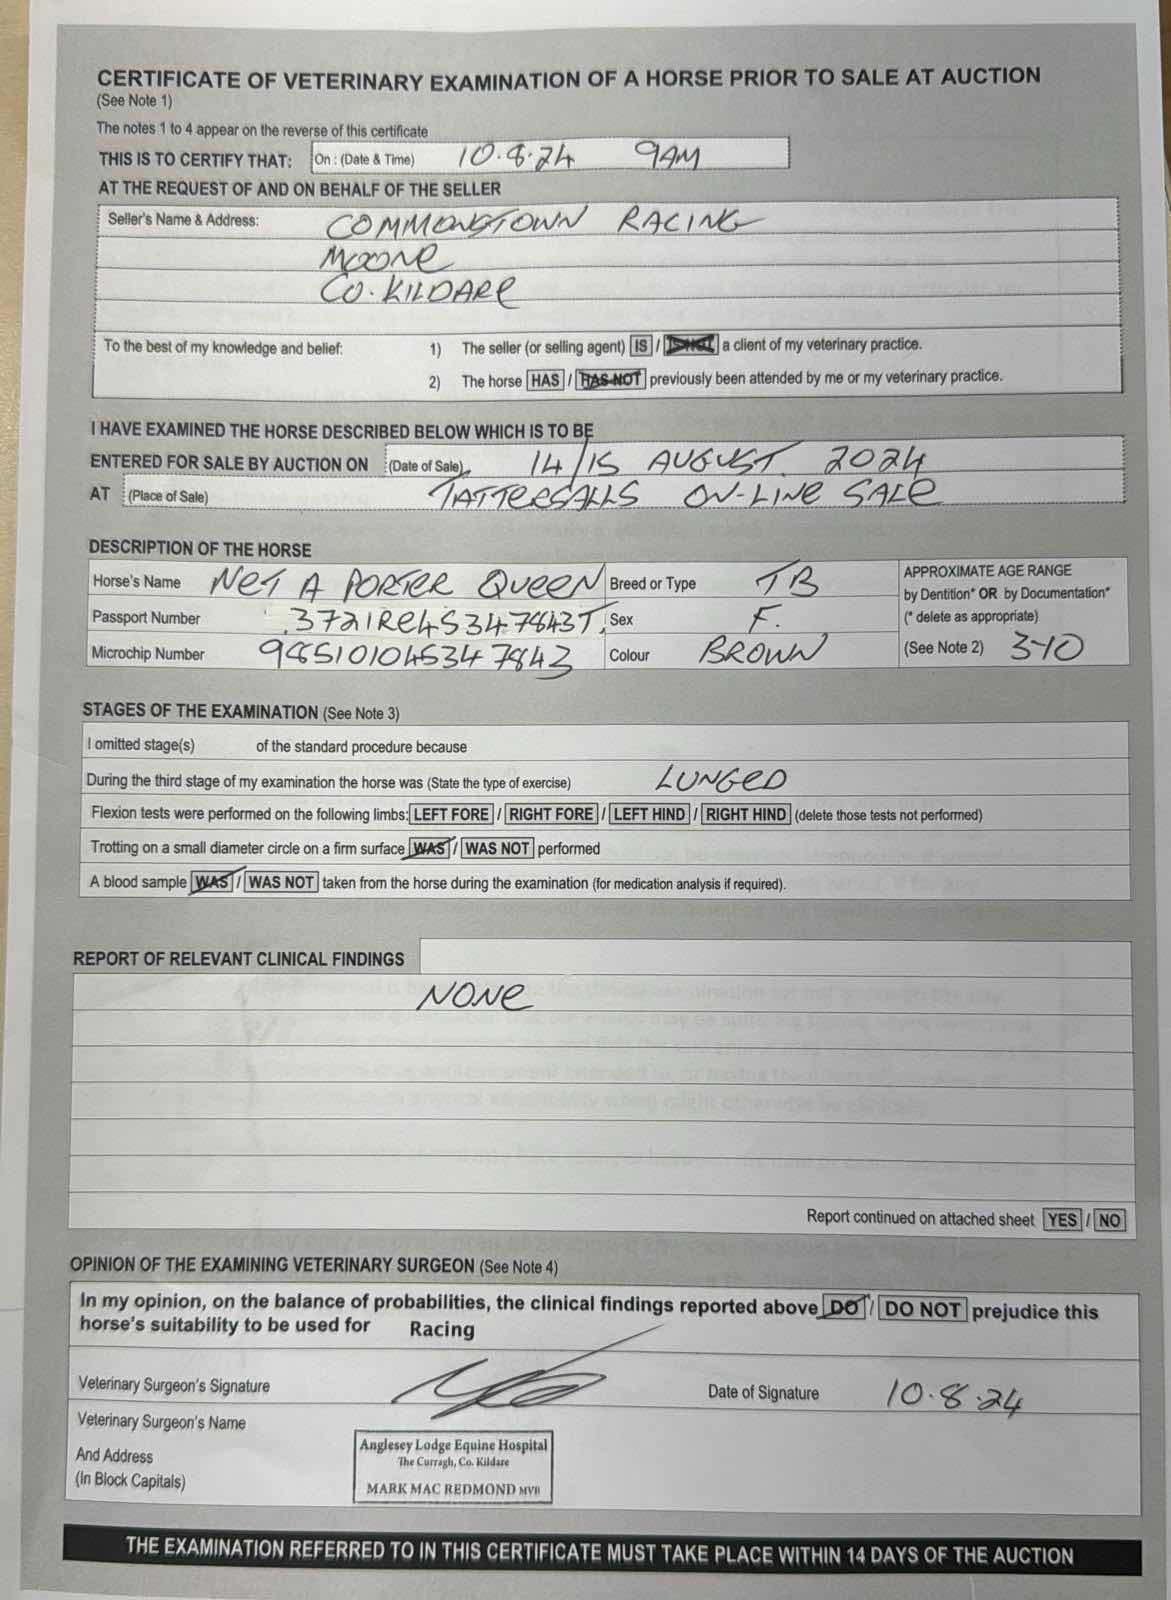 CERTIFICATE OF VETERINARY EXAMINATION OF A HORSE PRIOR TO SALE AT AUCTION
(See Note 1)
The notes 1 to 4 appear on the reverse of this certificate
THIS IS TO CERTIFY THAT: On : (Date & Time) 10.8.24 9AM
AT THE REQUEST OF AND ON BEHALF OF THE SELLER
Seller's Name & Address: COMMONSTOWN RACING
MOONE
CO. KILDARE
To the best of my knowledge and belief: 1) The seller (or selling agent) IS / IS NOT a client of my veterinary practice.
2) The horse HAS / HAS NOT previously been attended by me or my veterinary practice.
I HAVE EXAMINED THE HORSE DESCRIBED BELOW WHICH IS TO BE
ENTERED FOR SALE BY AUCTION ON (Date of Sale) 14/15 AUGUST. 2024
AT (Place of Sale) TATTERSALLS ON-LINE SALE
DESCRIPTION OF THE HORSE
Horse's Name NET A PORTER QUEEN Breed or Type TB APPROXIMATE AGE RANGE
by Dentition* OR by Documentation*
Passport Number 372IRE45347843T. Sex F. (* delete as appropriate)
Microchip Number 985101045347843 Colour BROWN (See Note 2) 3YO
STAGES OF THE EXAMINATION (See Note 3)
I omitted stage(s) of the standard procedure because
During the third stage of my examination the horse was (State the type of exercise) LUNGED
Flexion tests were performed on the following limbs: LEFT FORE / RIGHT FORE / LEFT HIND / RIGHT HIND (delete those tests not performed)
Trotting on a small diameter circle on a firm surface WAS / WAS NOT performed
A blood sample WAS / WAS NOT taken from the horse during the examination (for medication analysis if required).
REPORT OF RELEVANT CLINICAL FINDINGS
NONE
Report continued on attached sheet YES / NO
OPINION OF THE EXAMINING VETERINARY SURGEON (See Note 4)
In my opinion, on the balance of probabilities, the clinical findings reported above DO / DO NOT prejudice this
horse's suitability to be used for Racing
Veterinary Surgeon's Signature Date of Signature 10.8.24
Veterinary Surgeon's Name
And Address
(In Block Capitals)
Anglesey Lodge Equine Hospital
The Curragh, Co. Kildare
MARK MAC REDMOND MVB
THE EXAMINATION REFERRED TO IN THIS CERTIFICATE MUST TAKE PLACE WITHIN 14 DAYS OF THE AUCTION